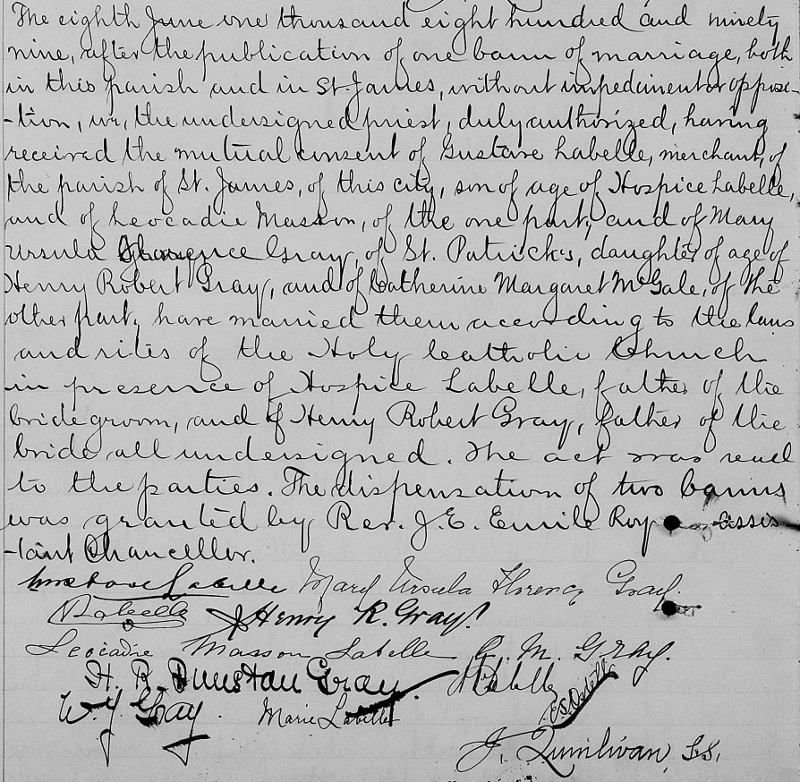 The eighth June one thousand eight hundred and ninety
nine, after the publication of one bann of marriage, both
in this parish and in St. James, without impediment or opposi-
-tion, we, the undersigned priest, duly authorized, having
received the mutual consent of Gustave Labelle, merchant, of
the parish of St. James, of this city, son of age of Hospice Labelle,
and of Leocadie Masson, of the one part, and of Mary
Ursula Florence Gray, of St. Patrick's, daughter of age of
Henry Robert Gray, and of Catherine Margaret McGale, of the
other part, have married them according to the laws
and rites of the Holy Catholic Church
in presence of Hospice Labelle, father of the
bridegroom, and of Henry Robert Gray, father of the
bride all undersigned. The act was read
to the parties. The dispensation of two banns
was granted by Rev. J. E. Emile Roy assis
-tant Chancellor.
Gustave Labelle Mary Ursula Florence Gray.
Labelle Henry R. Gray.
Leocadie Masson Labelle C. M. Gray.
H. R. Dunstan Gray. Labelle
W. J. Gray Marie Labelle
J. Quinlivan, S.S.